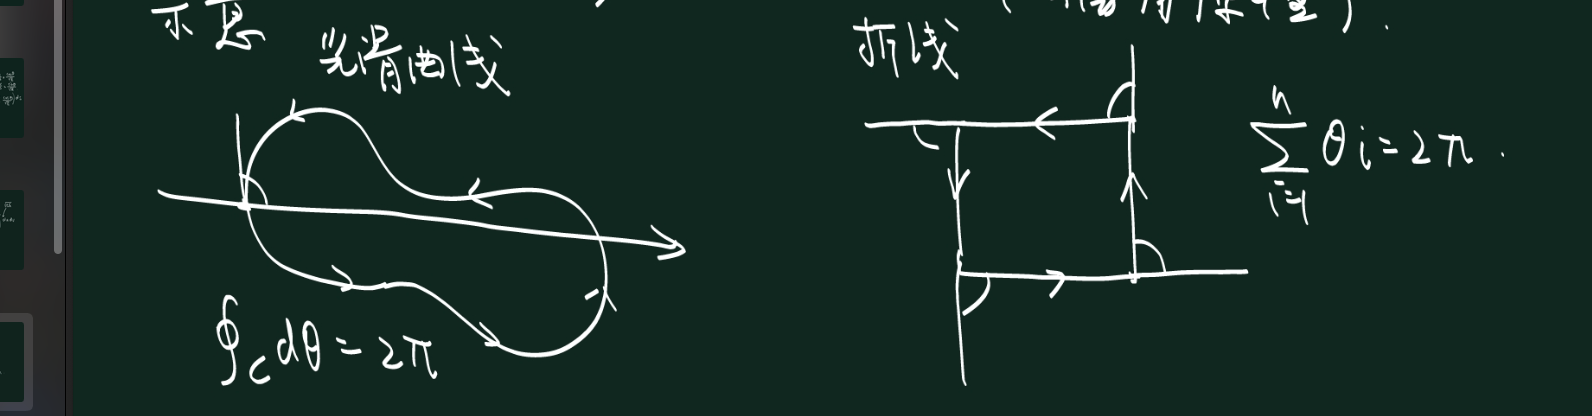 示意
光滑曲线
∮_C dθ = 2π
折线
∑_{i=1}^{n} θi = 2π.